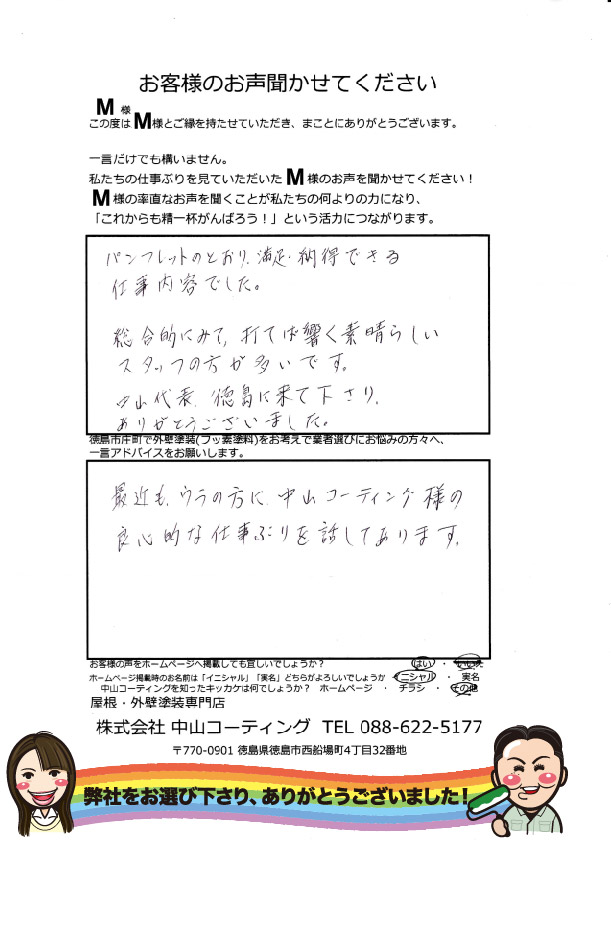 お客様のお声聞かせてください
M 様
この度は M様とご縁を持たせていただき、まことにありがとうございます。
一言だけでも構いません。
私たちの仕事ぶりを見ていただいた M 様のお声を聞かせてください！
M 様の率直なお声を聞くことが私たちの何よりの力になり、
「これからも精一杯がんばろう！」という活力につながります。
パンフレットのとおり、満足・納得できる
仕事内容でした。
総合的にみて、打てば響く素晴らしい
スタッフの方が多いです。
中山代表、徳島に来て下さり、
ありがとうございました。
徳島市庄町で外壁塗装(フッ素塗料)をお考えで業者選びにお悩みの方々へ、
一言アドバイスをお願いします。
最近も、ウラの方に、中山コーティング様の
良心的な仕事ぶりを話してあります。
お客様の声をホームページへ掲載しても宜しいでしょうか？ はい ・ いいえ
ホームページ掲載時のお名前は「イニシャル」「実名」どちらがよろしいでしょうか イニシャル ・ 実名
中山コーティングを知ったキッカケは何でしょうか？ ホームページ ・ チラシ ・ その他
屋根・外壁塗装専門店
株式会社 中山コーティング TEL 088-622-5177
〒770-0901 徳島県徳島市西船場町4丁目32番地
弊社をお選び下さり、ありがとうございました！